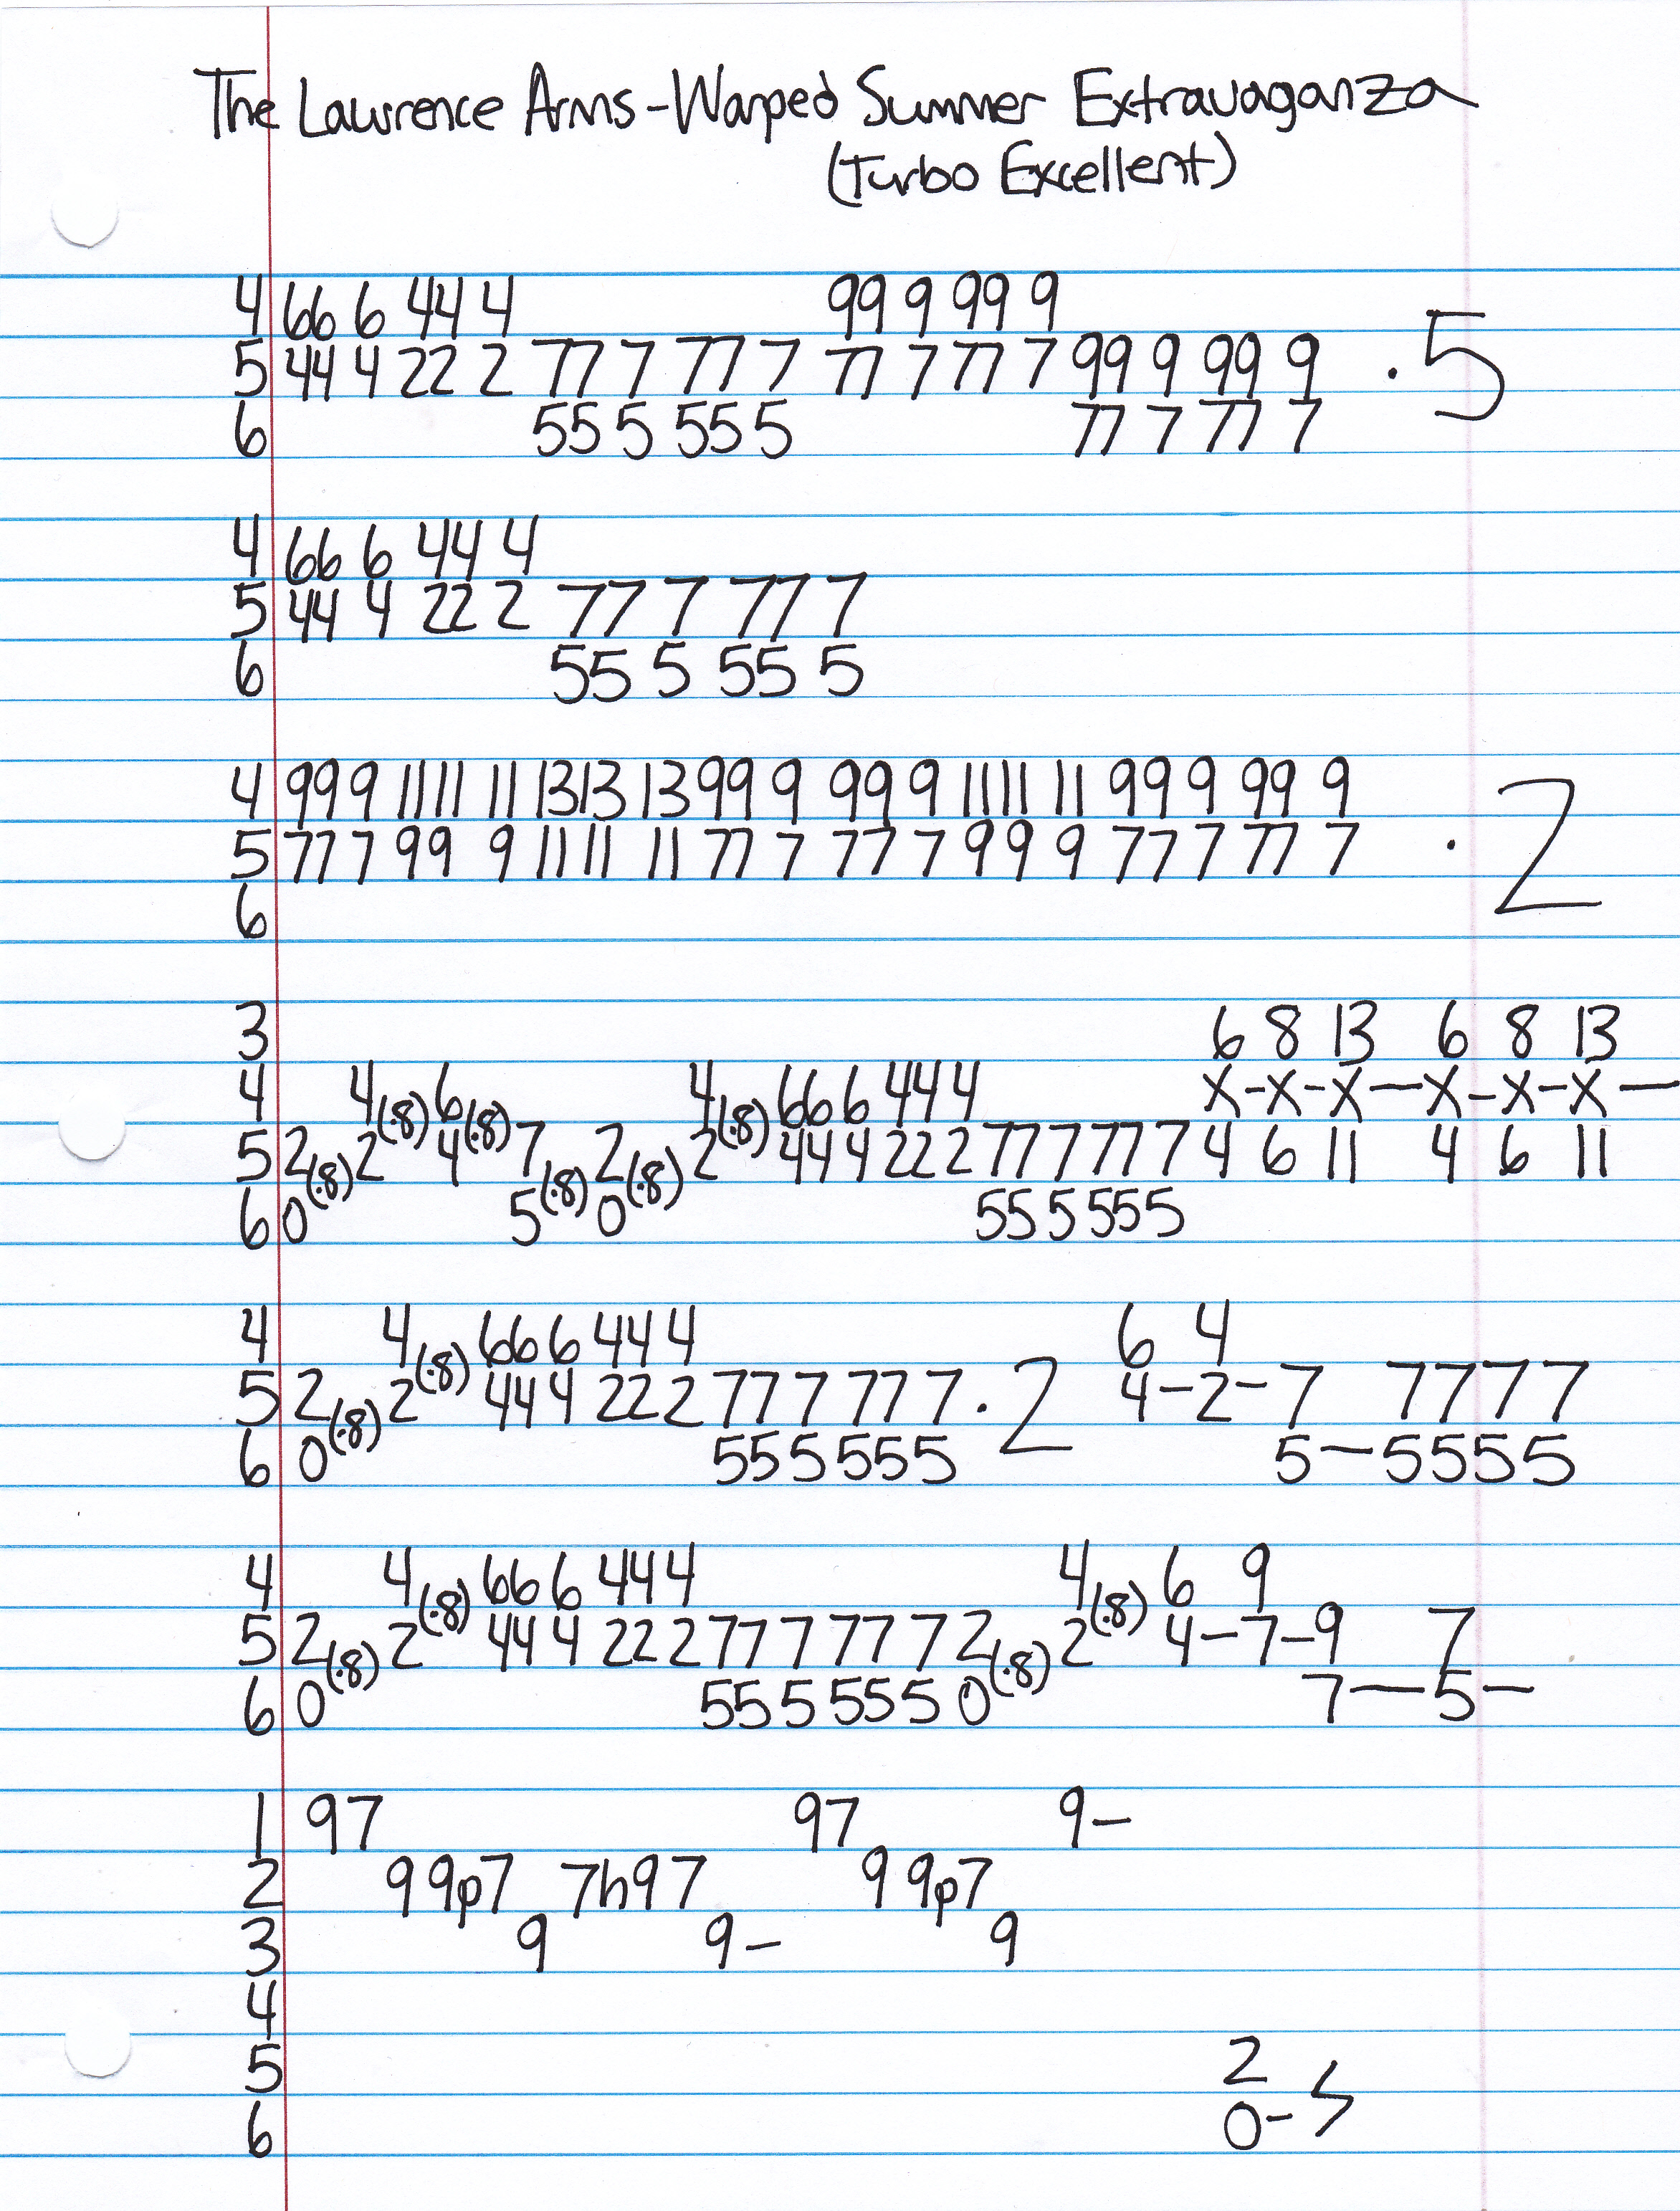 The Lawrence Arms-Warped Summer Extravaganza
(Turbo Excellent)
4 66 6 44 4 99 9 99 9
5 44 4 22 2 77 7 77 7 77 7 77 7 99 9 99 9 . 5
6 55 5 55 5 77 7 77 7
4 66 6 44 4
5 44 4 22 2 77 7 77 7
6 55 5 55 5
4 99 9 11 11 11 13 13 13 99 9 99 9 11 11 11 99 9 99 9
5 77 7 99 9 11 11 11 77 7 77 7 99 9 77 7 77 7 . 2
6
3 6 8 13 6 8 13
4 4(.8) 6(.8) 4(.8) 66 6 44 4 x-x-x—x-x-x—
5 2(.8) 2 4 7(.8) 2(.8) 2 44 4 22 2 77 7 77 7 4 6 11 4 6 11
6 0 5 0 55 5 55 5
4 4(.8) 66 6 44 4 6 4
5 2(.8) 2 44 4 22 2 77 7 77 7 . 2 4-2-7 7777
6 0 55 5 55 5 5—5555
4 4(.8) 66 6 44 4 4(.8) 6 9
5 2(.8) 2 44 4 22 2 77 7 77 7 2(.8) 2 4-7-9 7
6 0 55 5 55 5 0 7—5-
1 97 97 9-
2 9 9p7 7h97 9 9p7
3 9 9- 9
4
5 2
6 0-